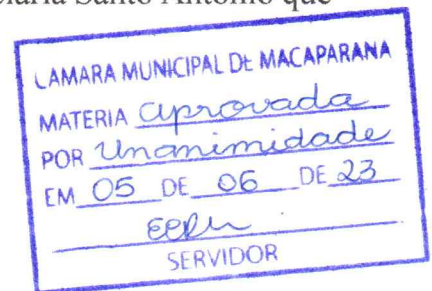 Santo Antônio que
CAMARA MUNICIPAL DE MACAPARANA
MATERIA aprovada
POR Unanimidade
EM 05 DE 06 DE 23
SERVIDOR